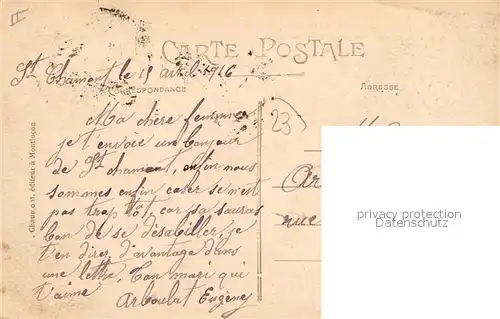 CARTE POSTALE
St Chamont le 15 avril 1916
CORRESPONDANCE
ADRESSE
23
Ma chère femme
je t'envoie un bonjour
de St chamont, enfin nous
sommes enfin caser se n'est
pas trop tôt, car sa sauras
bon de se désabiller, je
t'en direz d'avantage dans
une lettre, Ton mari qui
t'aime Arboulat Eugène
Ar
rue
privacy protection
Datenschutz
éditeur à Montluçon